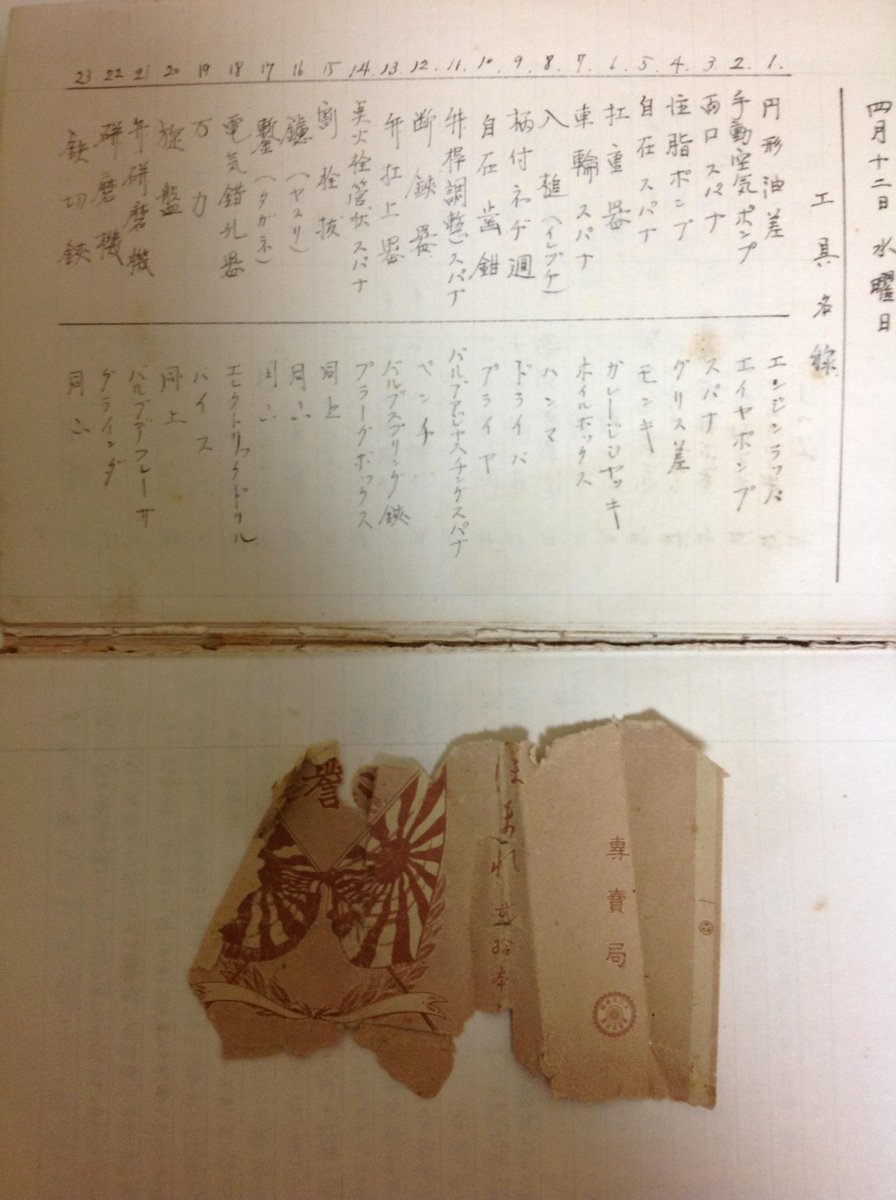 四月十二日 水曜日
工具名称
1. 円形油差 エンジンラッパ
2. 手動空気ポンプ エイヤポンプ
3 両口スパナ スパナ
4. 注脂ポンプ グリス差
5. 自在スパナ モンキ
6. 扛重器 ガレージジヤッキ
7. 車輪スパナ ホイルボックス
8. 入槌(イレヅケ) ハンマ
9. 柄付ネヂ廻 ドライバ
10. 自在歯鉗 プライヤ
11. 弁桿調整スパナ
12. 断鋏器 ペンチ
13. 弁扛上器 バルブスプリング鋏
14. 点火栓管状スパナ プラーグボックス
15 割栓抜 同上
16 鑢(ヤスリ) 同上
17 鏨(タガネ) 同上
18 電気錯孔器 エレクトリックドリル
19 万力 バイス
20 旋盤 同上
21 弁研磨機 バルブデフレーサ
22 研磨機 グラインダ
23 鉄切鋏 同上
譽
ほまれ 貳拾本
専賣局